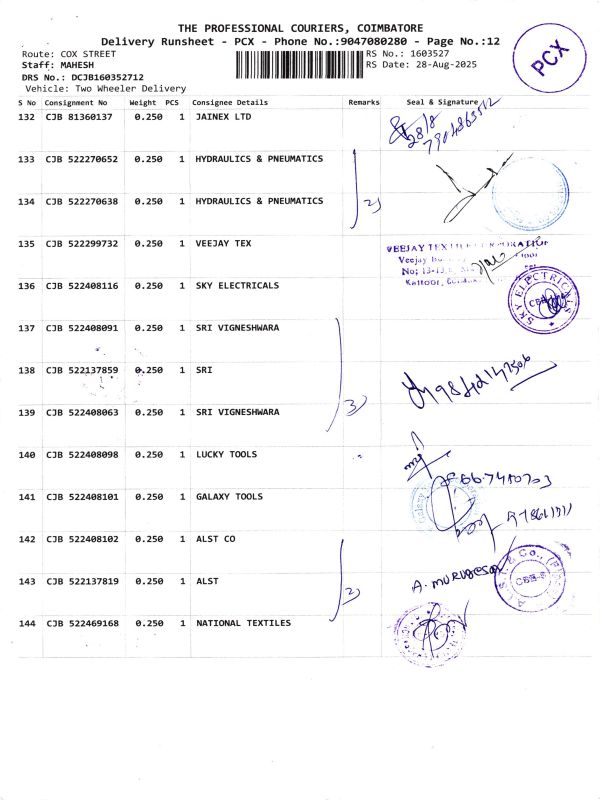 THE PROFESSIONAL COURIERS, COIMBATORE
Delivery Runsheet - PCX - Phone No.:9047080280 - Page No.:12
Route: COX STREET RS No.: 1603527
Staff: MAHESH RS Date: 28-Aug-2025
DRS No.: DCJB160352712
Vehicle: Two Wheeler Delivery
PCX
S No Consignment No Weight PCS Consignee Details Remarks Seal & Signature
132 CJB 81360137 0.250 1 JAINEX LTD
28/8
7904863512
133 CJB 522270652 0.250 1 HYDRAULICS & PNEUMATICS
134 CJB 522270638 0.250 1 HYDRAULICS & PNEUMATICS
2)
135 CJB 522299732 0.250 1 VEEJAY TEX
VEEJAY TEXTILE CORPORATION
Veejay
No; 13-13,
Kattoor,
136 CJB 522408116 0.250 1 SKY ELECTRICALS
SKY ELECTRICALS
CBE
137 CJB 522408091 0.250 1 SRI VIGNESHWARA
138 CJB 522137859 0.250 1 SRI
139 CJB 522408063 0.250 1 SRI VIGNESHWARA
3)
140 CJB 522408098 0.250 1 LUCKY TOOLS
141 CJB 522408101 0.250 1 GALAXY TOOLS
Galaxy
142 CJB 522408102 0.250 1 ALST CO
143 CJB 522137819 0.250 1 ALST
2)
A. MURUGESAN
& Co.,
144 CJB 522469168 0.250 1 NATIONAL TEXTILES